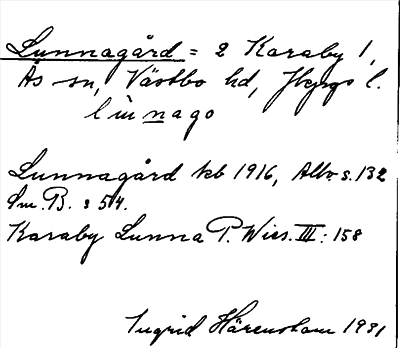 Lunnagård = 2 Karaby 1,
Ås sn, Västbo hd, Jkpgs l.
lùnnago
Lunnagård kb 1916, Allb. s. 132
Sm. B. s 54.
Karaby Lunna P. Wies. III: 158
Ingrid Härenstam 1931